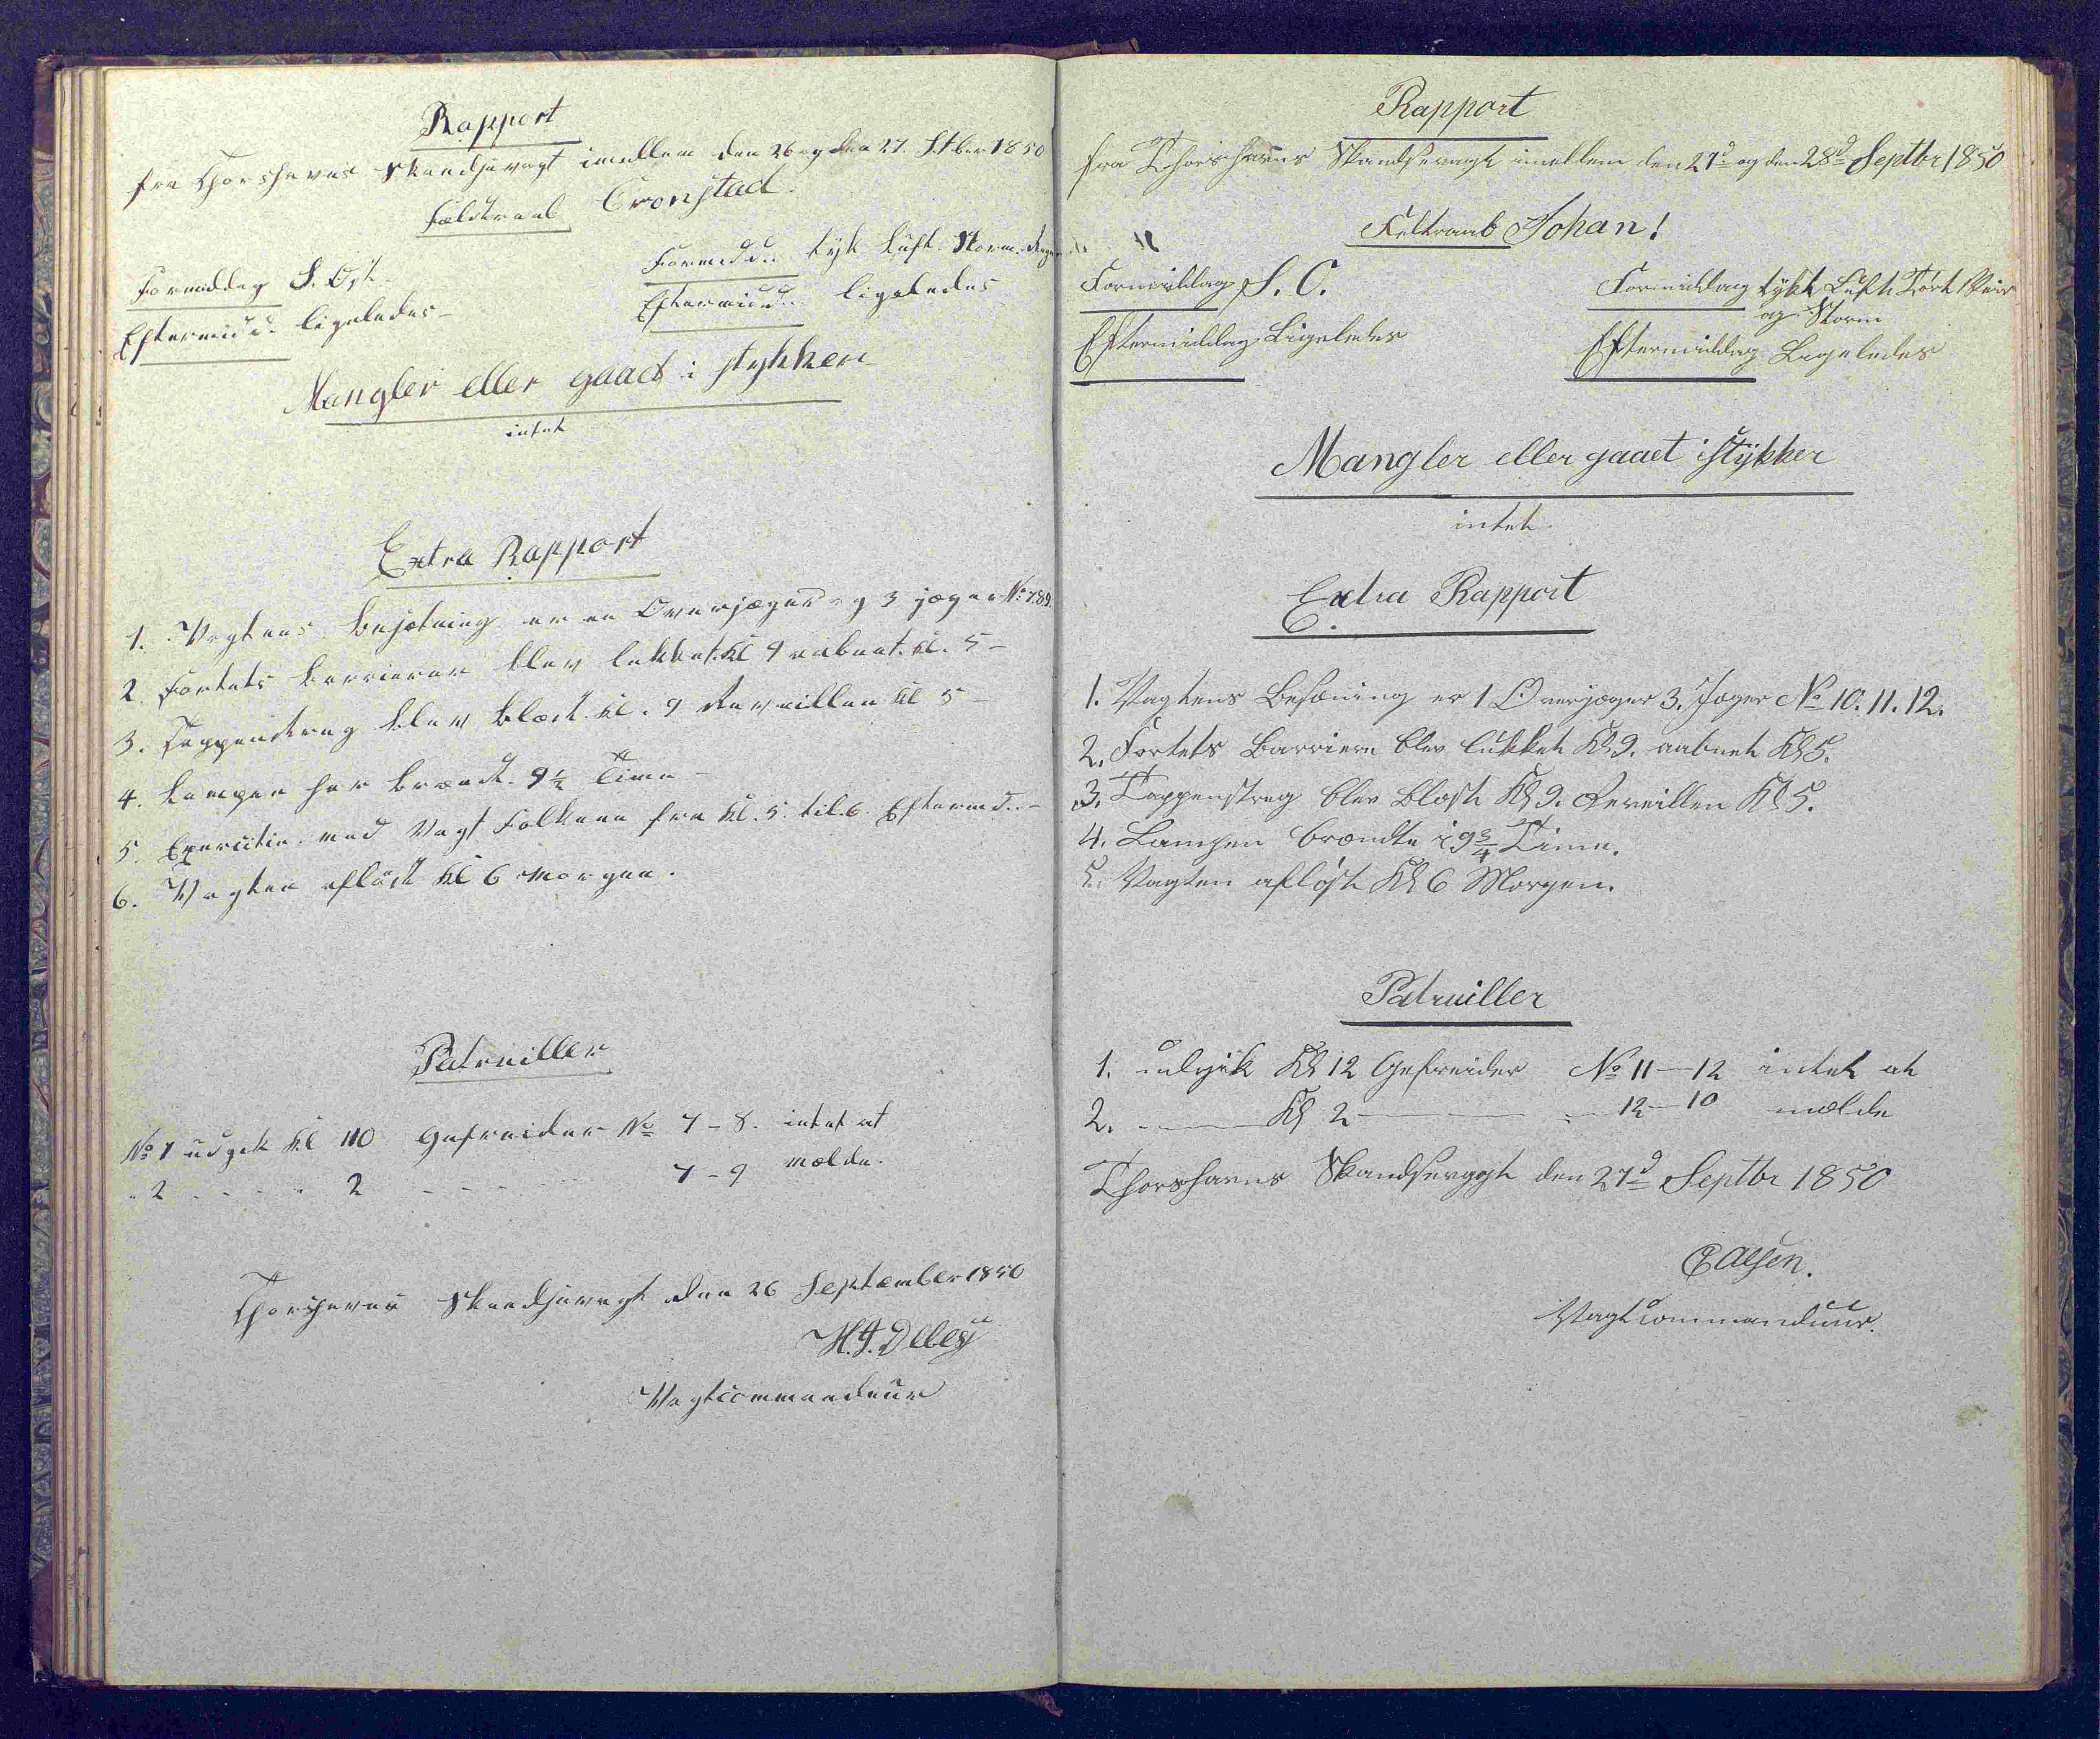 Rapport
fra Thorshavns Skandsevagt imellem den 26 og den 27. Stber 1850
Feldtraab Cronstad.
Formiddag S. Ost
Eftermidd. ligeledes
Formidd. tyk Luft. Storm.
Eftermidd. ligeledes
Mangler eller gaaet i stykker
intet
Extra Rapport
1. Vagtens besætning er en Overjæger og 3 jæger No 7.8.9.
2. Fortets barrierer blev lukket. Kl 9 aabnet. kl. 5 -
3. Tappenstreg blev blæst kl. 9 Reveillen kl 5 -
4. Lampen har brændt. 9½ Time -
5. Exercitie med Vagt Folkene fra kl. 5. til 6. Eftermd. -
6. Vagten afløst kl 6 Morgen.
Patruiller
No 1 udgik kl 10 Gefreider No 7 - 8. intet at
" 2 - - - - 2 - - - - 7 - 9 mælde.
Thorshavns Skandsevagt den 26 September 1850
H. J. Debes
Vagtcommandeur
Rapport
fra Thorshavns Skandsevagt imellem den 27d og den 28d Septbr 1850
Feltraab Johan!
Formiddag S. O.
Eftermiddag Ligeledes
Formiddag tykt Luft Tort Veir
og Storm
Eftermiddag Ligeledes
Mangler eller gaaet istykker
intet
Extra Rapport
1. Vagtens Besæning er 1 Overjæger 3. Jæger No 10. 11. 12.
2. Fortets Barriere blev lukket Kl 9. aabnet Kl 5.
3. Tappenstreg blev blæst Kl 9. Reveillen Kl 5.
4. Lampen brændte i 9¾ Time.
5. Vagten afløst Kl 6 Morgen.
Patruiller
1. udgik Kl 12 Gefreider No 11 - 12 intet at
2. - Kl 2 - - 12 - 10 mælde
Thorshavns Skandsevagt den 27d Septbr 1850
Vagtcommandeur.